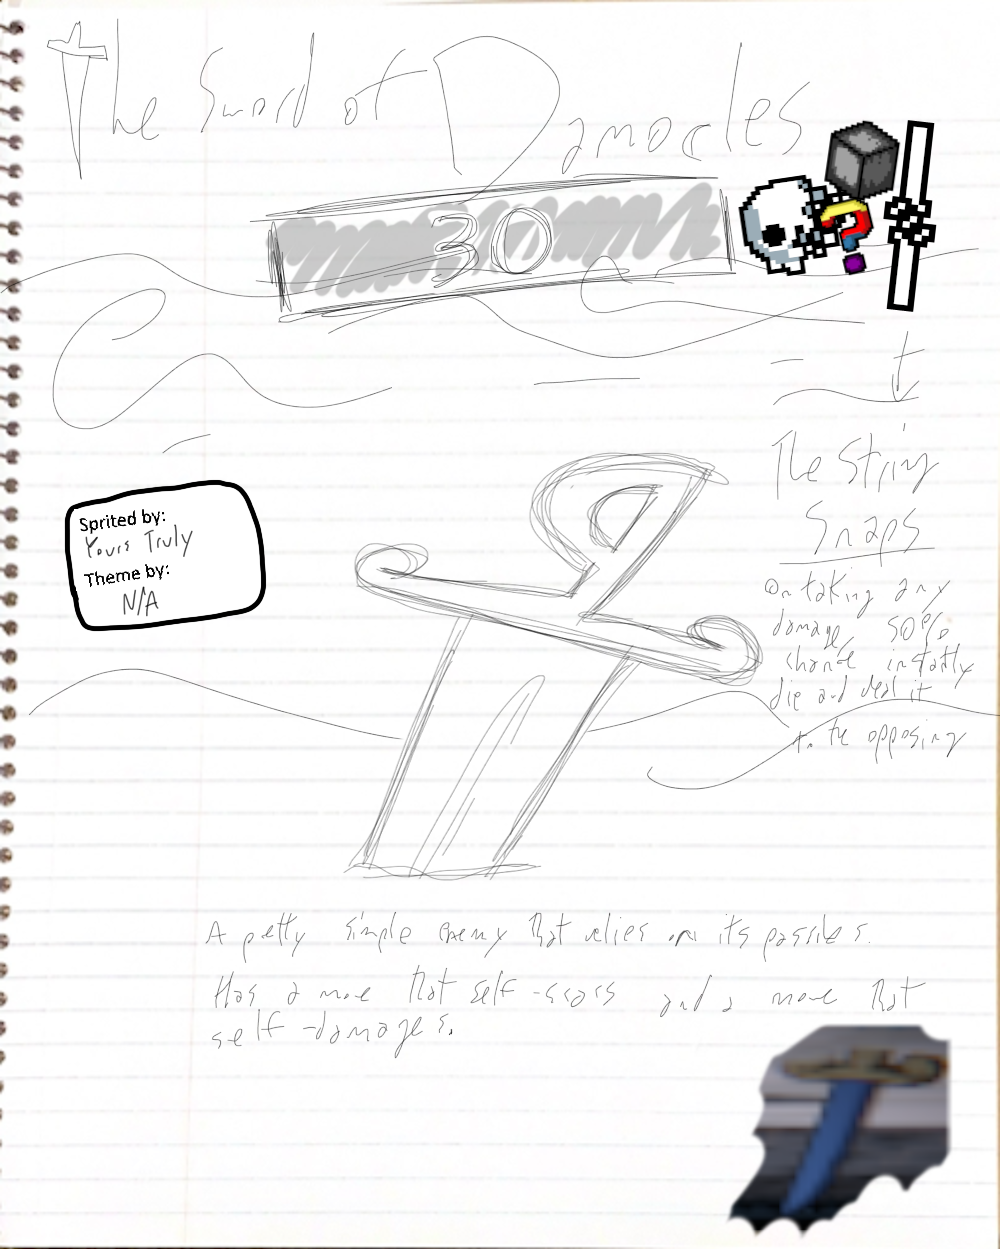 The Sword of Damocles
30
The String
Snaps
on taking any
damage, 50%
chance instatly
die and deal it
to the opposing
Sprited by:
Yours Truly
Theme by:
N/A
A petty simple enemy that relies on its passives.
Has a move that self-scars and a move that
self-damages.